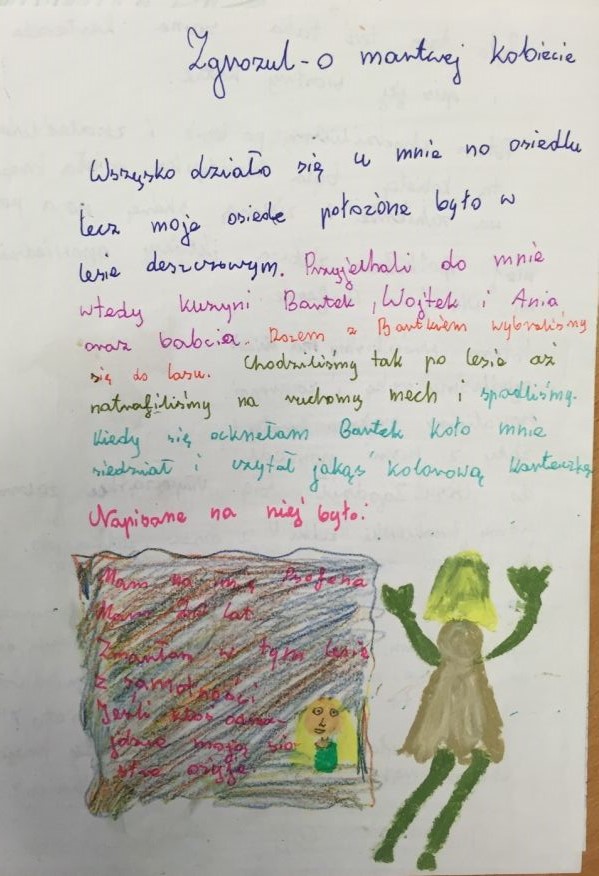 Zgrozul-o martwej kobiecie
Wszysko działo się u mnie no osiedlu
lecz moje osiedle położone było w
lesie deszczowym. Przyjelhali do mnie
wtedy kuzyni Bartek, Wojtek i Ania
oraz babcia. Razem z Bartkiem wybraliśmy
się do lasu. Chodziliśmy tak po lesie aż
natrafiliśmy na ruchomy mech i spadliśmy.
Kiedy się ocknęłam Bartek koło mnie
siedział i czytał jakąś kolorową karteczkę
Napisane na niej było:
Mam na imię Profena
Mam lat
Zmarłam w tym lesie
z samotności
Jeśli ktoś odna-
jdzie moją sio-
strę ożyję